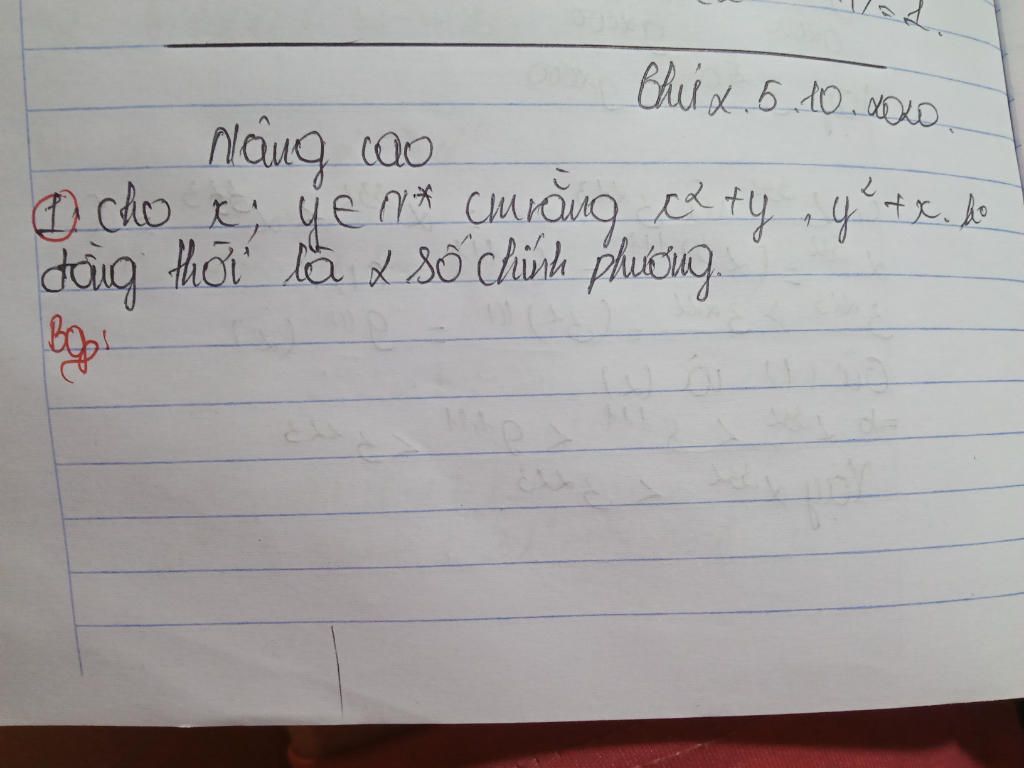 = 1.
Thứ 2. 5. 10. 2020.
Nâng cao
1) cho x; y ∈ N* cm rằng x² + y, y² + x. ko
đồng thời là 2 số chính phương.
Bg: